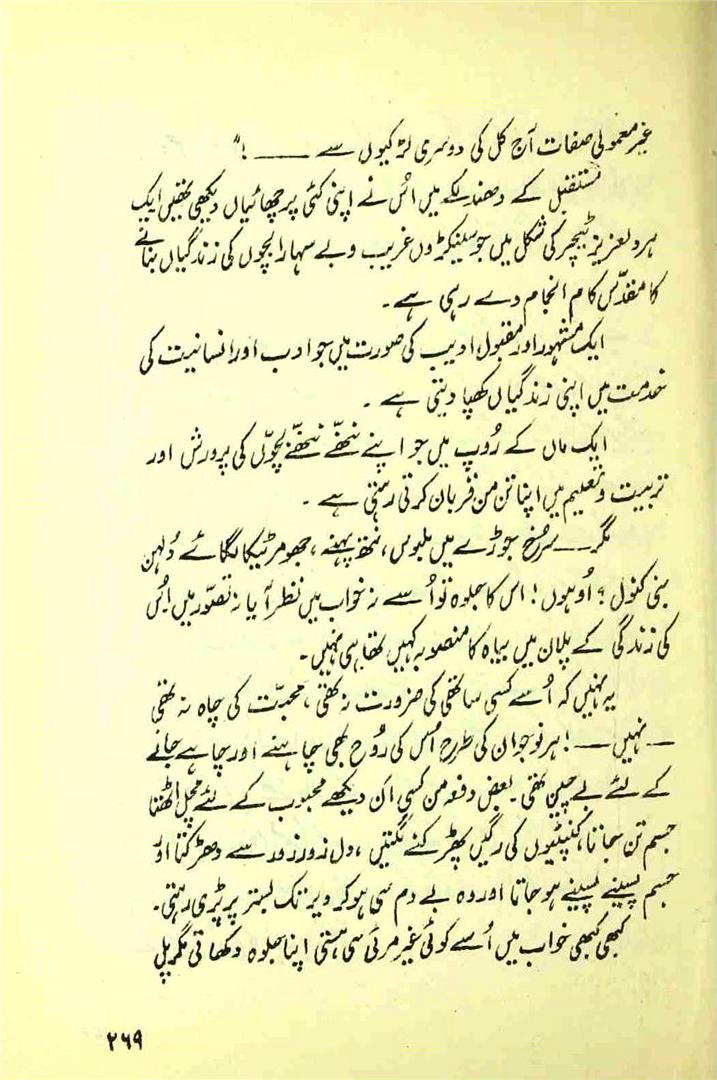 غیر معمولی صفات آج کل کی دوسری لڑکیوں سے ——— !"
مستقبل کے دھندلکے میں اُس نے اپنی کئی پرچھائیاں دیکھی تھیں ایک
ہردلعزیز ٹیچر کی شکل میں جو سینکڑوں غریب و بے سہارا بچوں کی زندگیاں بنانے
کا مقدّس کام انجام دے رہی ہے۔
ایک مشہور اور مقبول ادیب کی صورت میں جو ادب اور انسانیت کی
خدمت میں اپنی زندگیاں کھپا دیتی ہے ۔
ایک ماں کے رُوپ میں جو اپنے ننھّے ننھّے بچوّں کی پرورش اور
تربیت و تعلیم میں اپنا تن من قربان کرتی رہتی ہے ۔
مگر — سرُخ جوڑے میں ملبوس، نتھ پہنے، جھومر ٹیکا لگائے دُلہن
بنی کنول؟ اُوہوں! اس کا جلوہ تو اُسے نہ خواب میں نظر آیا نہ تصوّر میں۔ اُس
کی زندگی کے پلان میں بیاہ کا منصوبہ کہیں تھا ہی نہیں۔
یہ نہیں کہ اُسے کسی ساتھی کی ضرورت نہ تھی، محبّت کی چاہ نہ تھی
— نہیں —! ہر نوجوان کی طرح اُس کی رُوح بھی چاہنے اور چاہے جانے
کے لئے بے چین تھی۔ بعض دفعہ من کسی اَن دیکھے محبوب کے لئے مچل اٹھتا
جسم تن سا جاتا، کنپٹیوں کی رگیں پھڑکنے لگتیں، دل زور زور سے دھڑکتا اور
جسم پسینے پسینے ہو جاتا اور وہ بے دم سی ہو کر دیر تک بستر پر پڑی رہتی۔
کبھی کبھی خواب میں اُسے کوئی غیر مرئی سی ہستی اپنا جلوہ دکھاتی مگر پل
۲۶۹